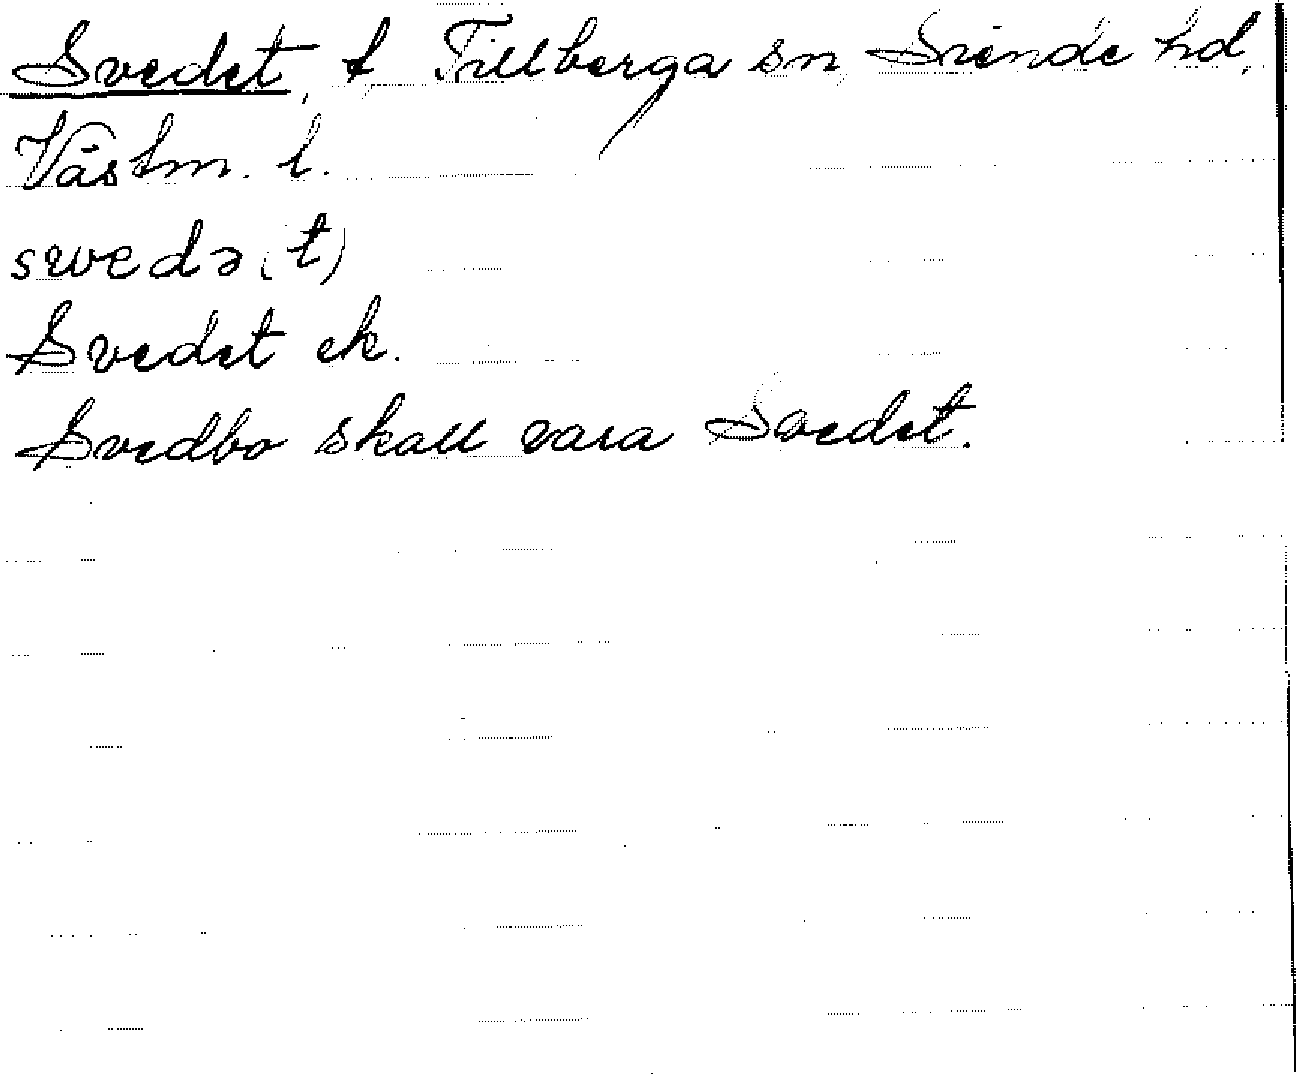 Svedet, t Tillberga sn, Siende hd,
Västm. l.
svedə(t)
Svedet ek.
Svedbo skall vara Svedet.